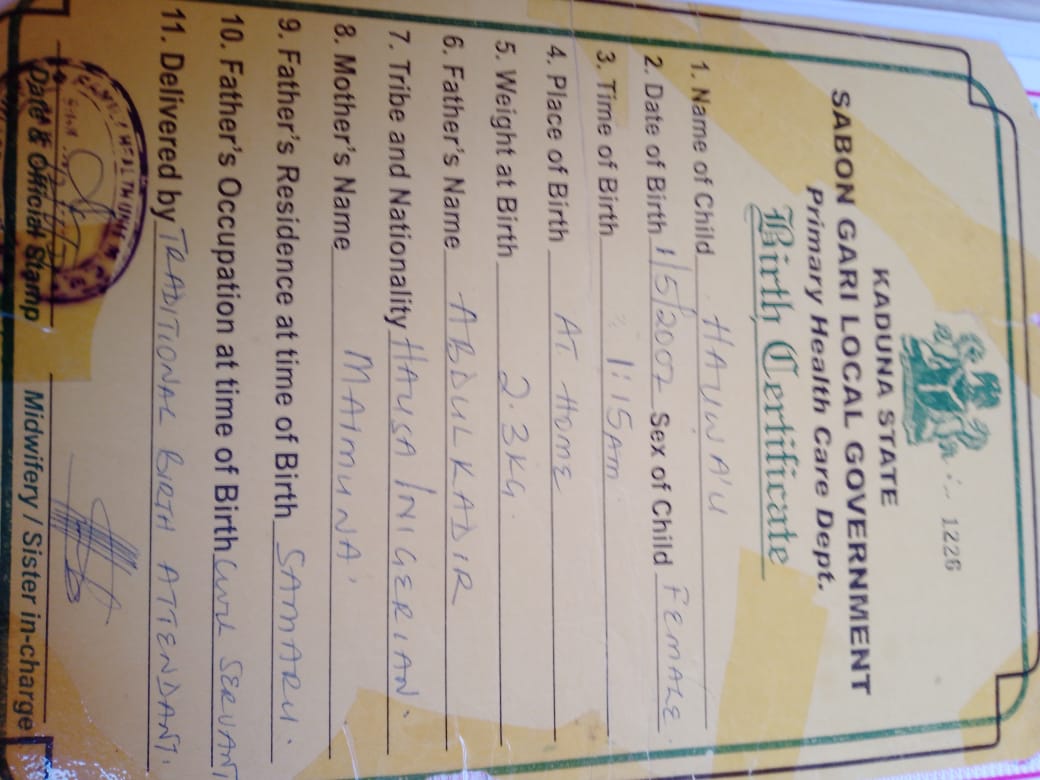 1226
KADUNA STATE
SABON GARI LOCAL GOVERNMENT
Primary Health Care Dept.
Birth Certificate
1. Name of Child HAUWA'U
2. Date of Birth 1/5/2002 Sex of Child FEMALE.
3. Time of Birth 1:15am
4. Place of Birth AT HOME
5. Weight at Birth 2.3KG.
6. Father's Name ABDULKADIR
7. Tribe and Nationality HAUSA / NIGERIAN.
8. Mother's Name MAIMUNA.
9. Father's Residence at time of Birth SAMARU.
10. Father's Occupation at time of Birth CIVIL SERVANT
11. Delivered by TRADITIONAL BIRTH ATTENDANT.
FAMILY HEALTH UNIT
Date & Official Stamp Midwifery / Sister in-charge